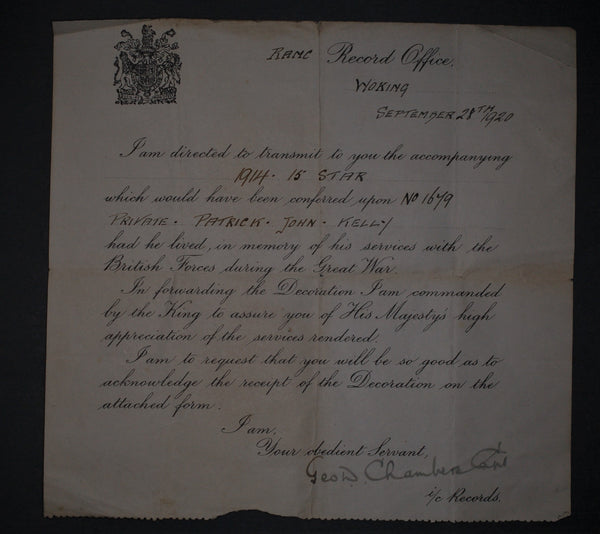 RAMC Record Office,
WOKING
SEPTEMBER 28TH 1920
I am directed to transmit to you the accompanying
1914. 15 STAR
which would have been conferred upon No 1679
PRIVATE. PATRICK. JOHN. KELLY
had he lived, in memory of his services with the
British Forces during the Great War.
In forwarding the Decoration I am commanded
by the King to assure you of His Majesty's high
appreciation of the services rendered.
I am to request that you will be so good as to
acknowledge the receipt of the Decoration on the
attached form.
I am,
Your obedient Servant,
Geo D. Chambers
i/c Records.